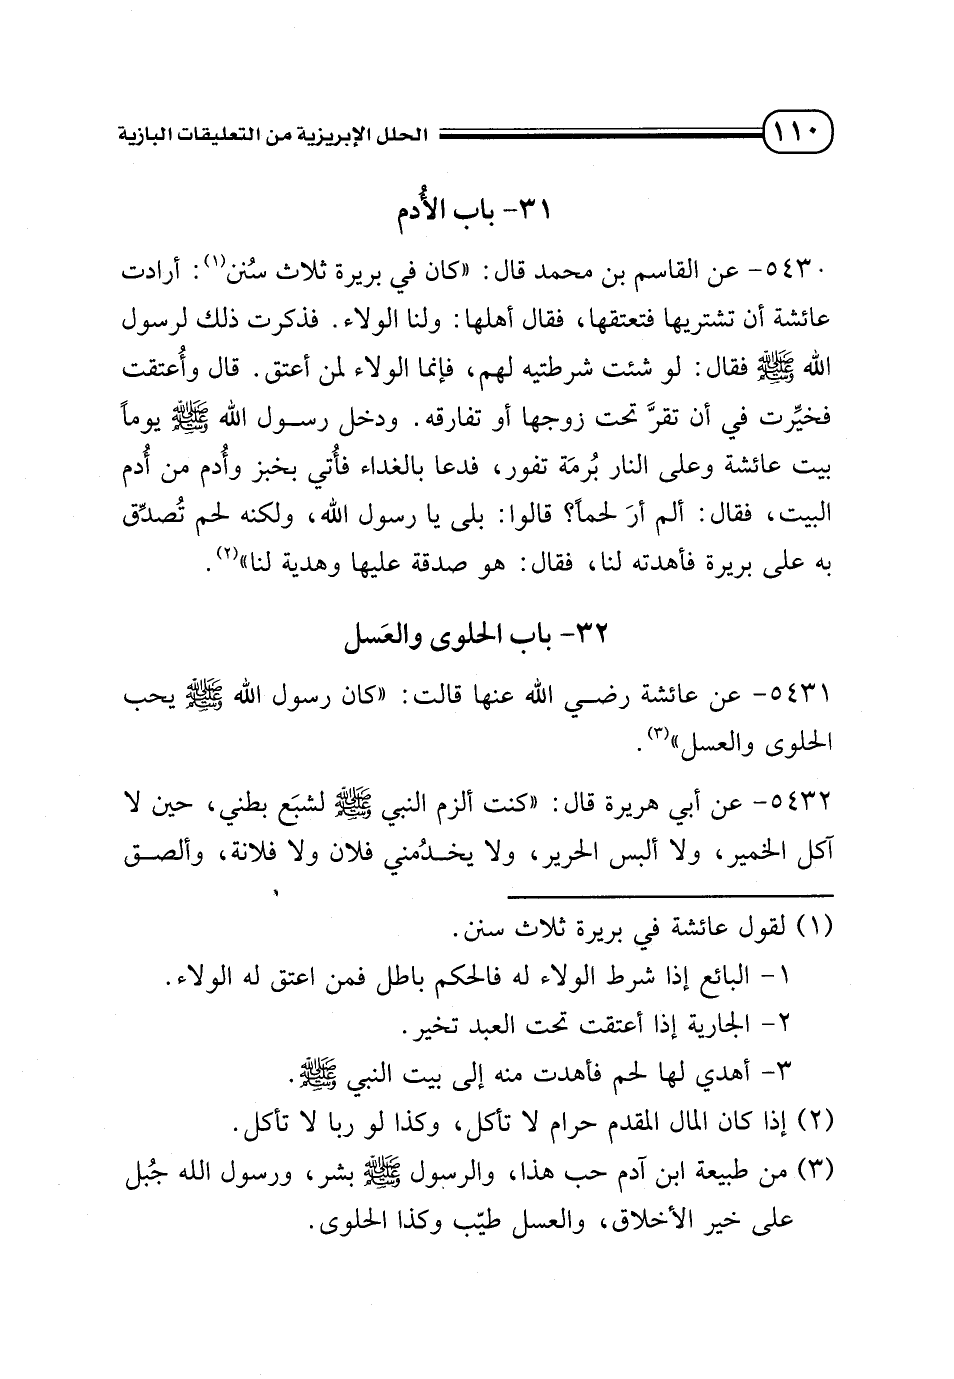 ١١٠ الحلل الإبريزية من التعليقات البازية
٣١- باب الأُدم
٥٤٣٠- عن القاسم بن محمد قال: «كان في بريرة ثلاث سُنن(١): أرادت
عائشة أن تشتريها فتعتقها، فقال أهلها: ولنا الولاء. فذكرت ذلك لرسول
الله ﷺ فقال: لو شئت شرطتيه لهم، فإنما الولاء لمن أعتق. قال وأُعتقت
فخيِّرت في أن تقرَّ تحت زوجها أو تفارقه. ودخل رسول الله ﷺ يوماً
بيت عائشة وعلى النار بُرمَة تفور، فدعا بالغداء فأُتي بخبز وأُدم من أُدم
البيت، فقال: ألم أرَ لحماً؟ قالوا: بلى يا رسول الله، ولكنه لحم تُصدِّق
به على بريرة فأهدته لنا، فقال: هو صدقة عليها وهدية لنا»(٢).
٣٢- باب الحلوى والعَسل
٥٤٣١- عن عائشة رضي الله عنها قالت: «كان رسول الله ﷺ يحب
الحلوى والعسل»(٣).
٥٤٣٢- عن أبي هريرة قال: «كنت ألزم النبي ﷺ لشبَع بطني، حين لا
آكل الخمير، ولا ألبس الحرير، ولا يخدُمني فلان ولا فلانة، وألصق
(١) لقول عائشة في بريرة ثلاث سنن.
١- البائع إذا شرط الولاء له فالحكم باطل فمن اعتق له الولاء.
٢- الجارية إذا أعتقت تحت العبد تخير.
٣- أهدي لها لحم فأهدت منه إلى بيت النبي ﷺ.
(٢) إذا كان المال المقدم حرام لا تأكل، وكذا لو ربا لا تأكل.
(٣) من طبيعة ابن آدم حب هذا، والرسول ﷺ بشر، ورسول الله جُبل
على خير الأخلاق، والعسل طيّب وكذا الحلوى.